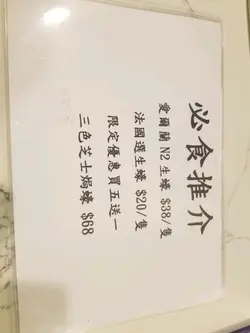 必食推介
愛爾蘭N2生蠔 $38/隻
法國選生蠔 $20/隻
限定優惠買五送一
三色芝士焗蠔 $68